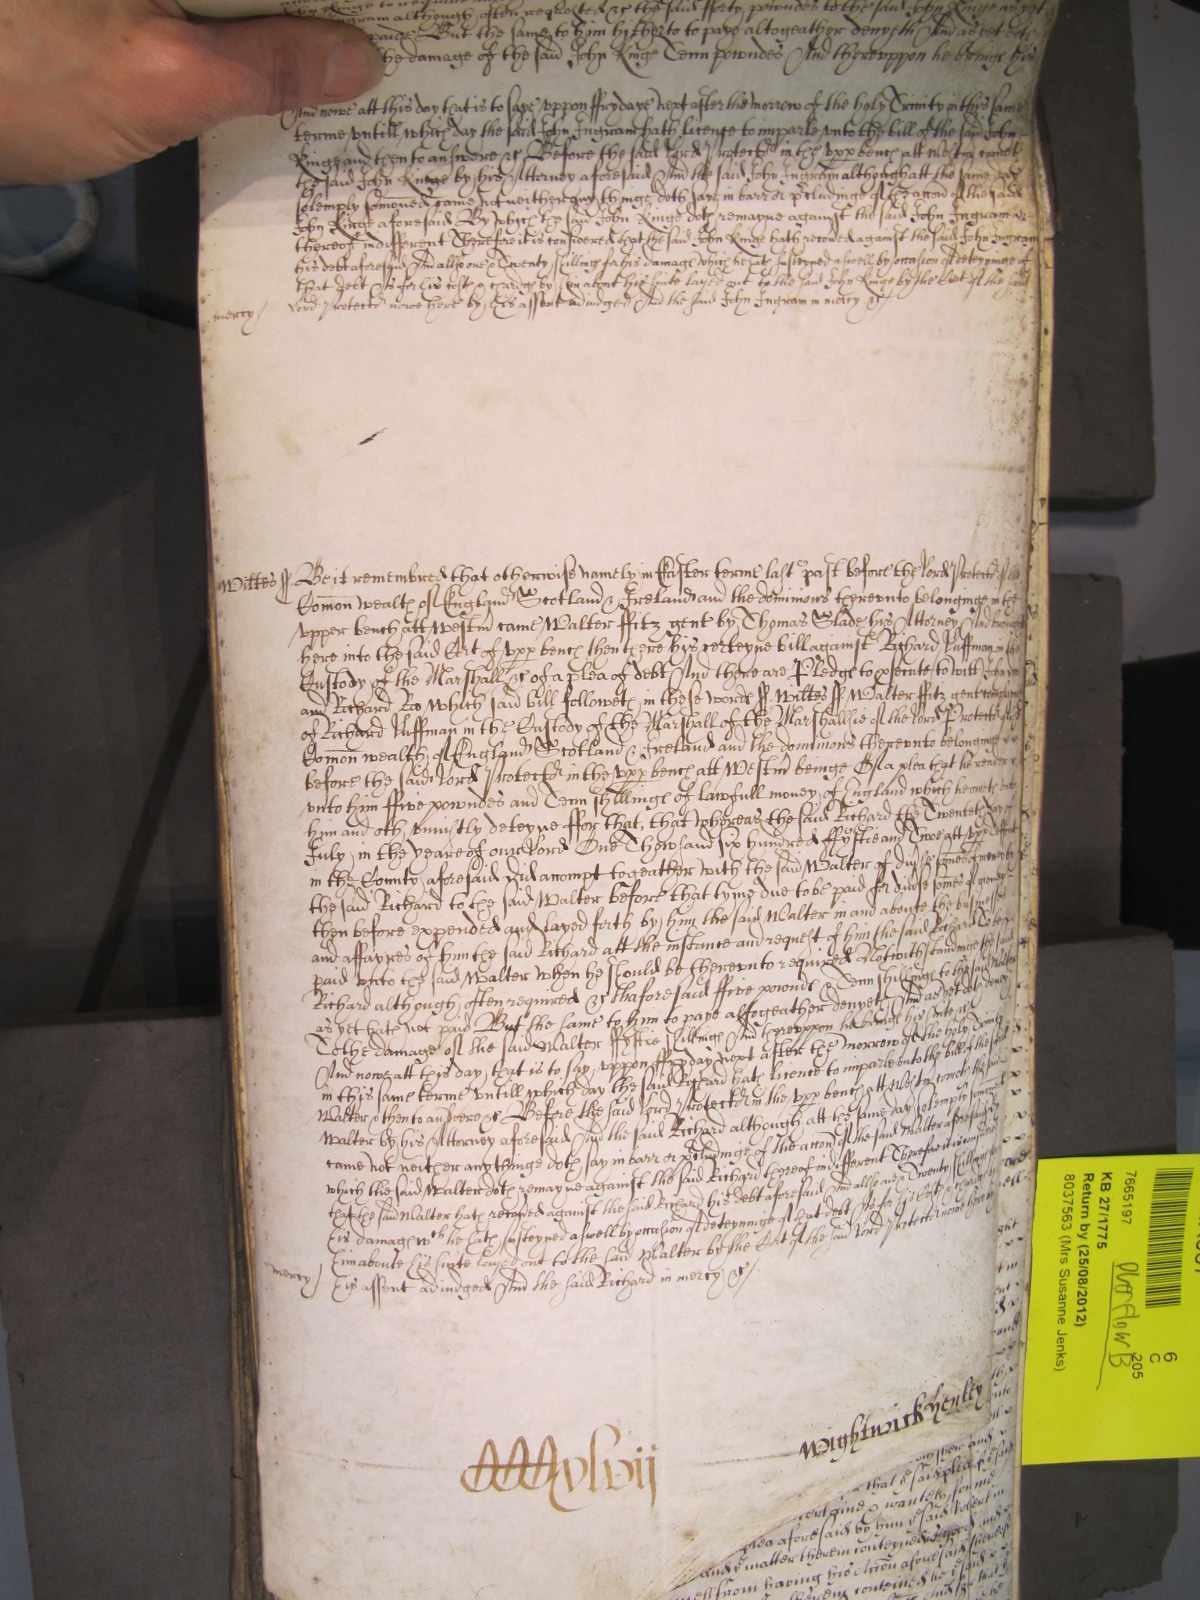 Ingram although often requested &c the said fforty powndes to the said John Kinge as yet
paide But the same to him hitherto to paye altogeather denyeth And as yet doth
the damage of the said John Kinge Tenn powndes And thereuppon he brings his
And nowe att this day that is to saye uppon ffrydaye next after the morrow of the holy Trinity in this same
terme untill which day the said John Ingram hath licence to imparle unto the bill of the said John
Kinge and then to answere &c Before the said Lord Protector in the upp bench att Westm cometh
the said John Kinge by his Attorney aforesaid And the said John Ingram although att the same day
solemply somoned came not neither any thinge doth saye in barr or p'cludinge of the accon of the said
John Kinge aforesaid By which the said John Kinge doth remayne against the said John Ingram
thereof indifferent Therefore it is considered that the said John Kinge hath recoued against the said John Ingram
his debt aforesaid And allso one & Twenty shillings for his damage which he hath susteyned aswell by occasion of deteyninge of
that debt As for his costs & charges by him about his suite layed out to the said John Kinge by the Cort of the said
mercy Lord Protector nowe here by his assent adiudged And the said John Ingram in mercy &c
Wiltes ss. Be it remembred that otherwise namely in Easter terme last past before the Lord Protector of the
Comon wealth of England Scotland & Ireland and the dominions thereunto belonginge in the
upper bench att Westm came Walter ffitz gent by Thomas Slade his Attorney And brought
here into the said Cort of upp bench then there his certeyne bill against Richard Kuffman in the
Custody of the Marshall &c of a plea of debt And there are Pledgs to p'secute to witt John Doe
and Richard Roo Which said bill followeth in these words ss. Wiltes ss Walter ffitz gent complaynes
of Richard Kuffman in the Custody of the Marshall of the Marshallsie of the Lord Protector of the
Comon wealth of England Scotland & Ireland and the dominions thereunto belonginge
before the said Lord Protector in the upp bench att Westm beinge Of a plea that he render
unto him ffive powndes and Tenn shillings of lawfull money of England which he oweth
him and doth uniustly deteyne ffor that, that whereas the said Richard the Twenteth day of
July in the yeare of our Lord One Thowsand six hundred ffyftie and Twoe att
in the County aforesaid did accompt togeather with the said Walter of divse somes of money by
the said Richard to the said Walter before that tyme due to be paid for divse somes of money
then before expended and layed forth by him the said Walter in and aboute the businesse
and affayres of him the said Richard att the instance and request of him the said Richard To be
paid unto the said Walter when he should be thereunto required Notwithstandinge the said
Richard although often required &c thaforesaid ffive pownds & Tenn shillings to the said Walter
as yet hath not paid But the same to him to paye altogeather denyeth And as yet doth deny
To the damage of the said Walter ffyftie shillings And thereuppon he brings his suite &c
And nowe att this day that is to say uppon ffryday next after the morrow of the holy Trinity
in this same terme untill which day the said Richard hath licence to imparle unto the bill of the said
Walter & then to answere &c Before the said Lord Protector in the upp bench att Westm cometh the said
Walter by his Attorney aforesaid And the said Richard although att the same day solemply somoned
came not neither anythinge doth say in barr or p'cludinge of the accon of the said Walter aforesaid By
which the said Walter doth remayne against the said Richard thereof indifferent Therefore it is considered
that the said Walter hath recoued against the said Richard his debt aforesaid And allso one & Twenty shillings for
his damage wch he hath susteyned aswell by occasion of deteyninge of that debt As for his costs & charges by
him aboute his suite layed out to the said Walter by the Cort of the said Lord Protector nowe here by
mercy his assent adiudged And the said Richard in mercy &c
Wightwick Henley
xlvij
that ye said
aforesaid by him ye said Robert in
and ye matter therein conteyned
from having his Accon aforesaid
7665197
KB 27/1775
Return by (25/08/2012)
8037563 (Mrs Susanne Jenks)
Overflow B
6
C
205